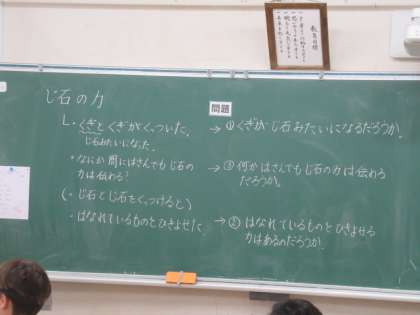 教育目標
じ石の力
問題
し・くぎとくぎがくっついた。
じ石みたいになった。
→①くぎがじ石みたいになるだろうか。
・なにか間にはさんでもじ石の
力は伝わる?
→③何かはさんでもじ石の力は伝わる
だろうか。
(・じ石とじ石をくっつけると)
・はなれているものとひきよせた。
→②はなれているものとひきよせる
力はあるのだろうか。